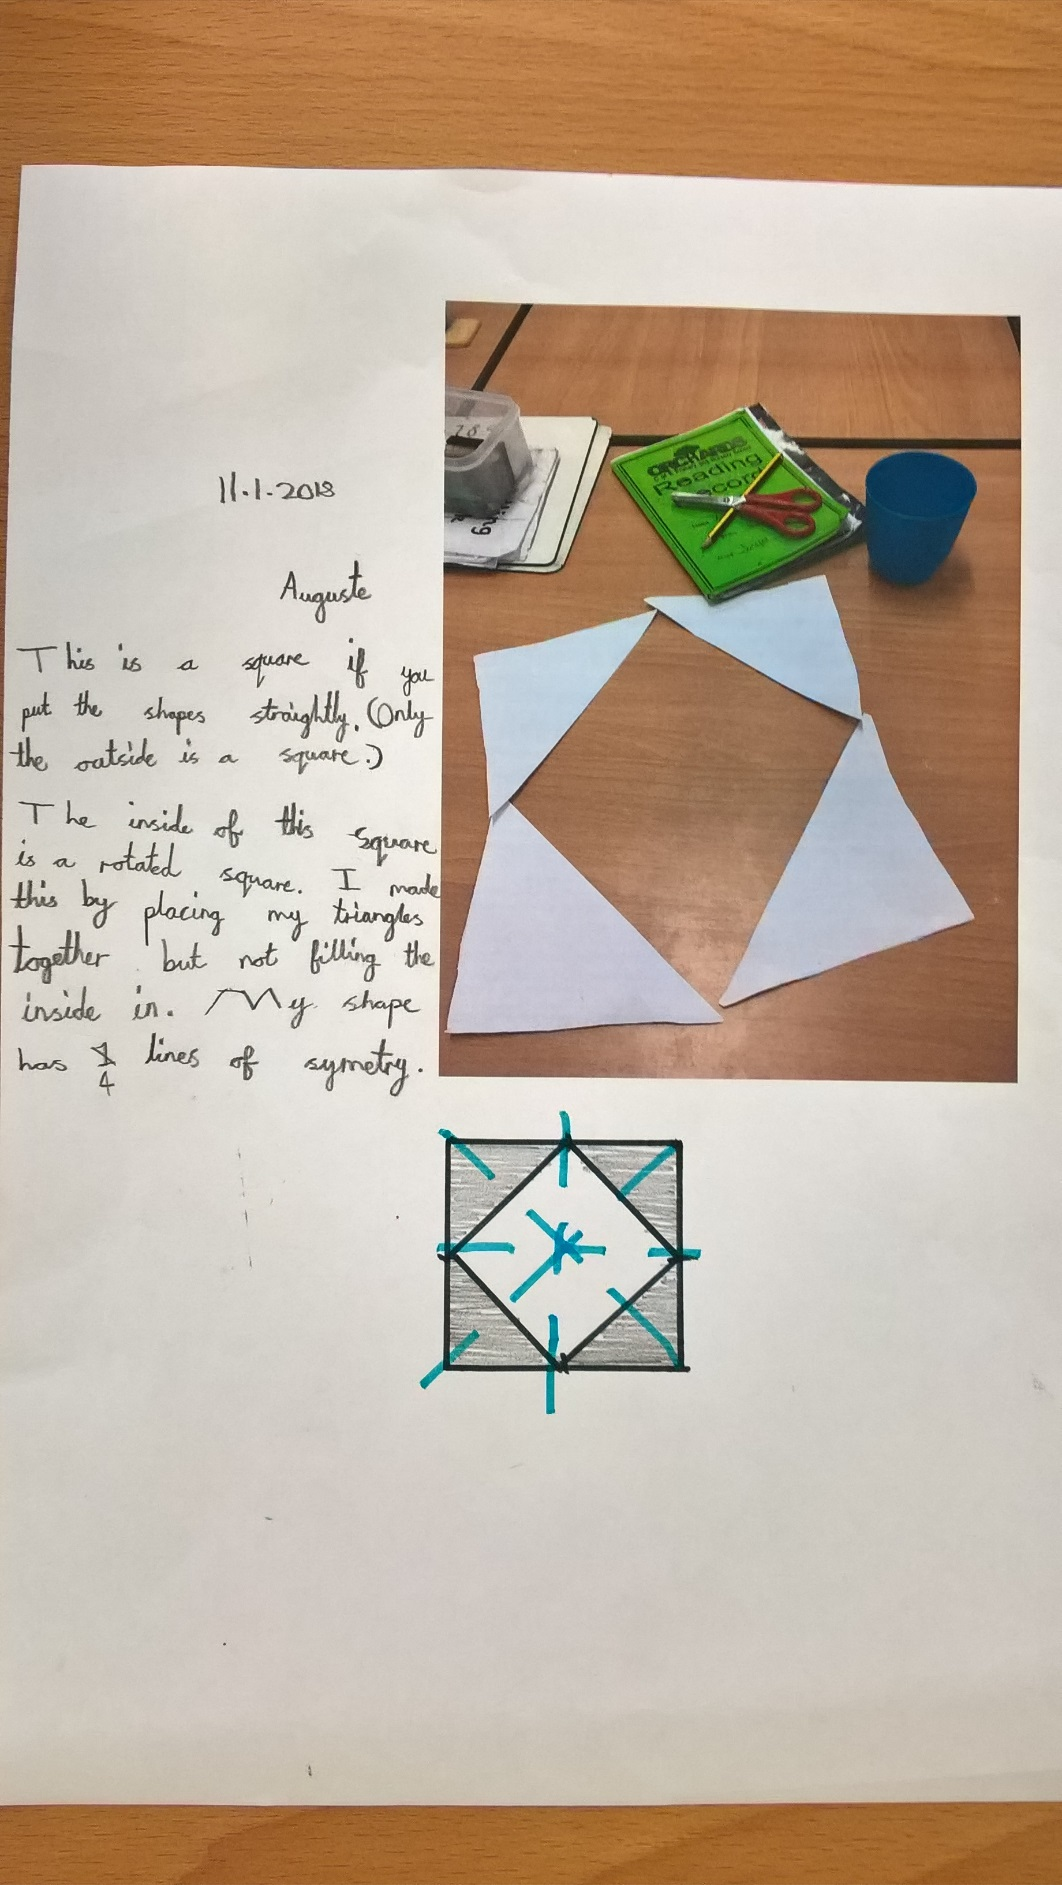 11.1.2018
Auguste
This is a square if you
put the shapes straightly. (Only
the outside is a square.)
The inside of this square
is a rotated square. I made
this by placing my triangles
together but not filling the
inside in. My shape
has 4 lines of symetry.
ORCHARDS
Reading